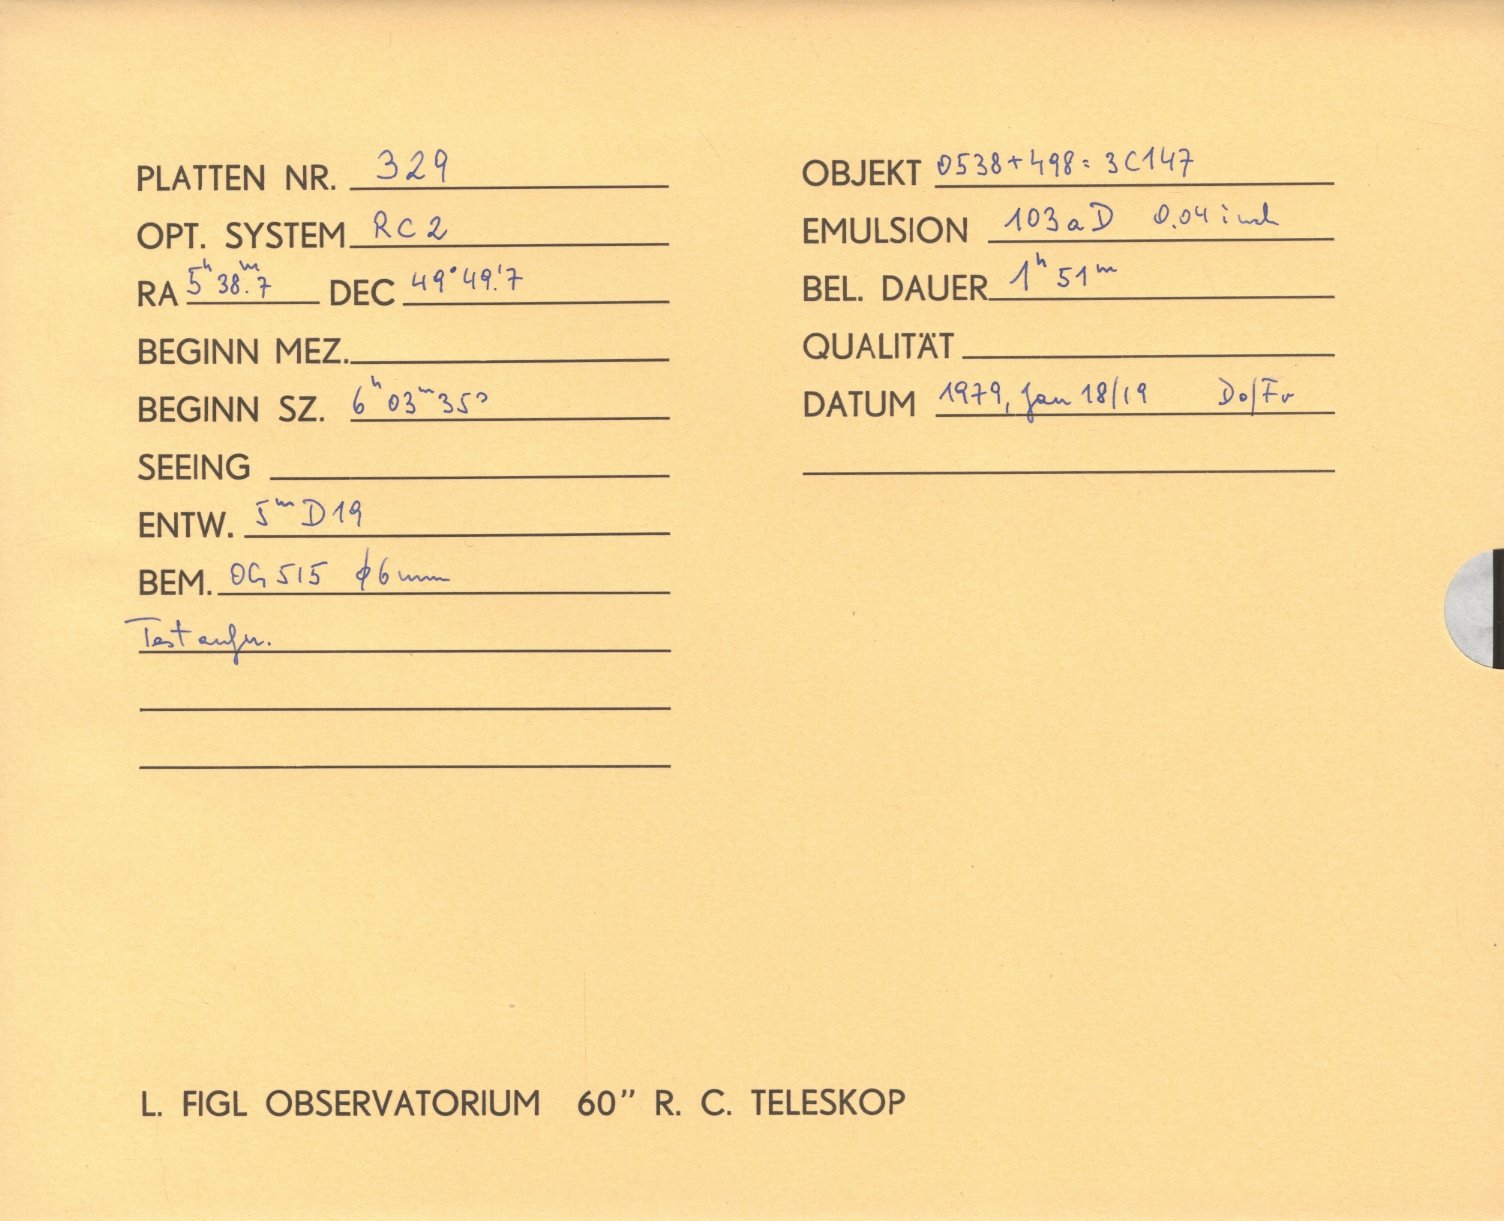 PLATTEN NR. 329
OPT. SYSTEM RC2
RA 5h 38m.7 DEC 49°49.'7
BEGINN MEZ.
BEGINN SZ. 6h 03m 35s
SEEING
ENTW. 5m D19
BEM. OG 515 ϕ6mm
Testaufn.
OBJEKT 0538+498 = 3C147
EMULSION 103aD 0.04 inch
BEL. DAUER 1h 51m
QUALITÄT
DATUM 1979, Jan 18/19 Do/Fr
L. FIGL OBSERVATORIUM 60" R. C. TELESKOP